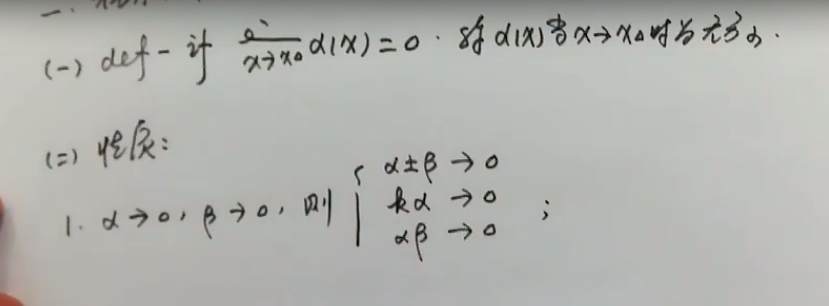 一.
(一) def - if lim x→x₀ α(x) = 0. 称 α(x) 当 x→x₀ 时为无穷小.
(二) 性质:
1. α→0, β→0, 则 { α±β → 0
kα → 0
αβ → 0 ;